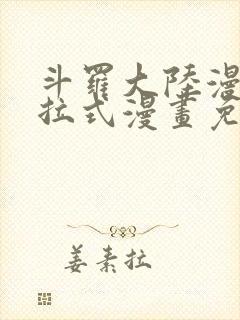 斗羅大陸漫
拉式漫畫免
姜素拉